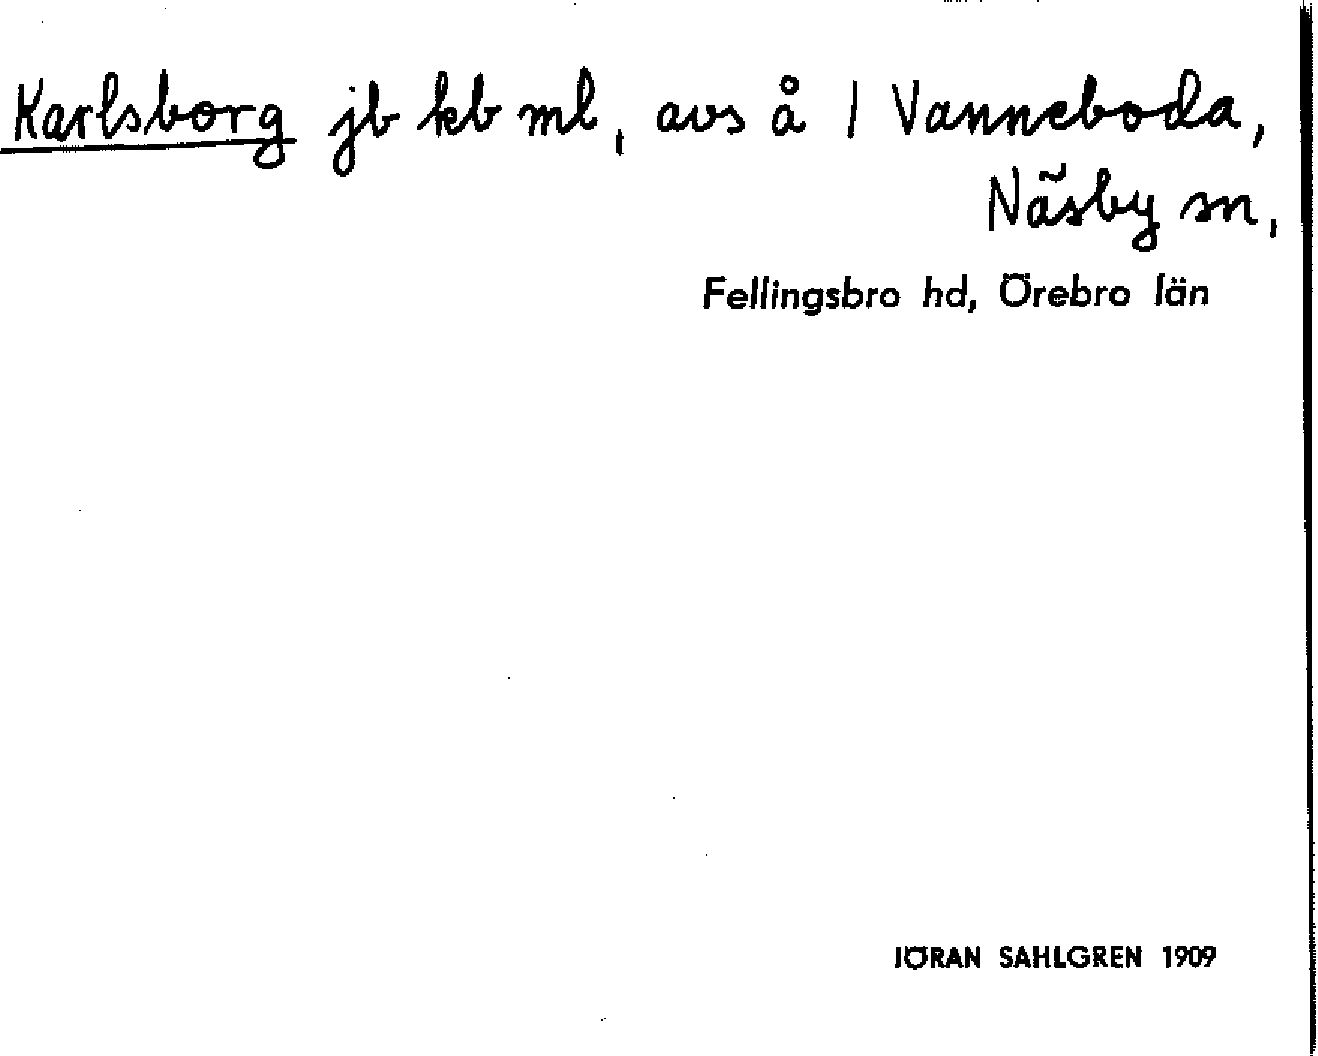 Karlsborg jb kb ml, avs å 1 Vanneboda,
Näsby sn,
Fellingsbro hd, Örebro län
JÖRAN SAHLGREN 1909